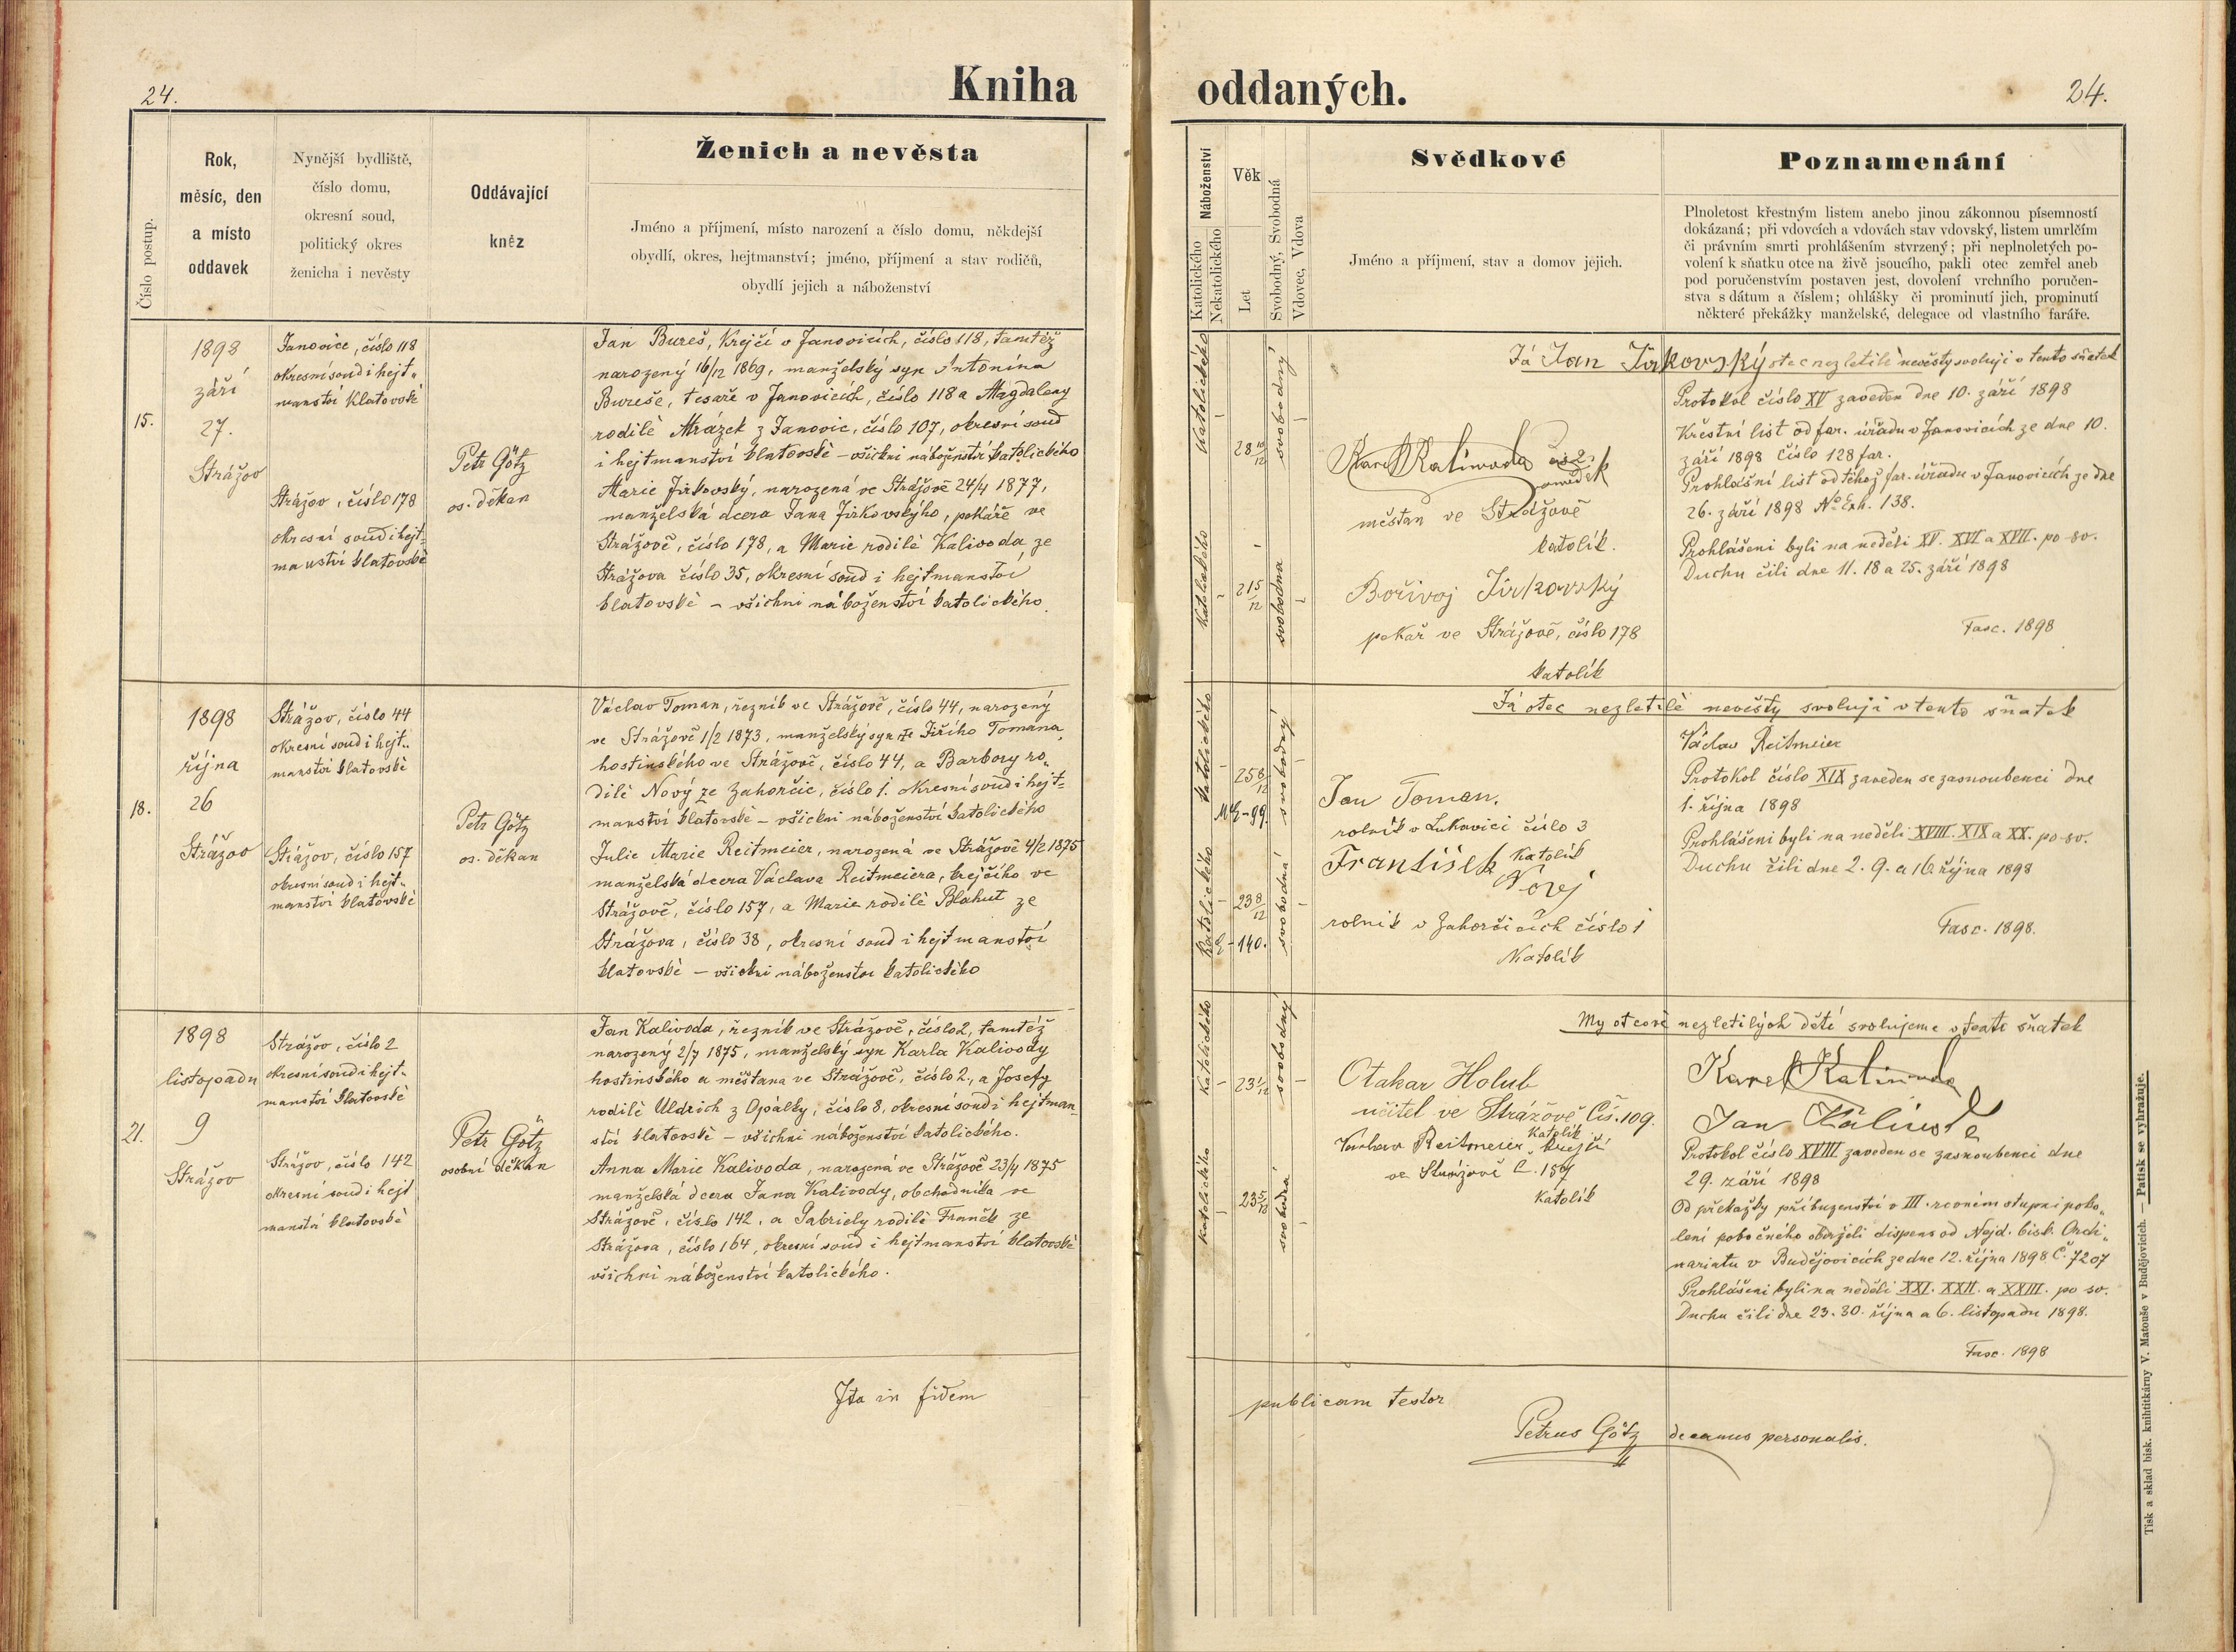 24.
Kniha
Číslo postup.
Rok,
měsíc, den
a místo
oddavek
Nynější bydliště,
číslo domu,
okresní soud,
politický okres
ženicha i nevěsty
Oddávající
kněz
Ženich a nevěsta
Jméno a příjmení, místo narození a číslo domu, někdejší
obydlí, okres, hejtmanství; jméno, příjmení a stav rodičů,
obydlí jejich a náboženství
15.
1898
září
27.
Strážov
Janovice, číslo 118
okresní soud i hejt„
manství Klatovské
Strážov, číslo 178
okresní soud i hejt=
manství klatovské
Petr Götz
os. děkan
Jan Bureš, Krejčí v Janovicích, číslo 118, tamtéž
narozený 16/12 1869, manželský syn Antonína
Bureše, tesaře v Janovicích, číslo 118 a Magdaleny
rodilé Mrázek z Janovic, číslo 107, okresní soud
i hejtmanství klatovské – všickni náboženství katolického
Marie Jirkovský, narozená ve Strážově 24/4 1877,
manželská dcera Jana Jirkovského, pekaře ve
Strážově, číslo 178, a Marie rodilé Kalivoda ze
Strážova číslo 35, okresní soud i hejtmanství
klatovské – všichni náboženství katolického.
18.
1898
října
26
Strážov
Strážov, číslo 44
okresní soud i hejt„
manství klatovské
Strážov, číslo 157
okresní soud i hejt„
manství klatovské
Petr Götz
os. děkan
Václav Toman, řezník ve Strážově, číslo 44, narozený
ve Strážově 1/2 1873, manželský syn Jiřího Tomana,
hostinského ve Strážově, číslo 44, a Barbory ro„
dilé Nový ze Zahorčic, číslo 1. okresní soud i hejt=
manství klatovské – všickni náboženství katolického
Julie Marie Reitmeier, narozená ve Strážově 4/2 1875
manželská dcera Václava Reitmeiera, krejčího ve
Strážově, číslo 157, a Marie rodilé Blahut ze
Strážova, číslo 38, okresní soud i hejtmanství
klatovské – všickni náboženství katolického
21.
1898
listopadu
9
Strážov
Strážov, číslo 2
okresní soud i hejt-
manství klatovské
Strážov, číslo 142
okresní soud i hejt
manství klatovské
Petr Götz
osobní děkan
Jan Kalivoda, řezník ve Strážově, číslo 2, tamtéž
narozený 2/7 1875, manželský syn Karla Kalivody
hostinského a měšťana ve Strážově, číslo 2, a Josefy
rodilé Uldrich z Opálky, číslo 8, okresní soud i hejtman-
ství klatovské – všichni náboženství katolického.
Anna Marie Kalivoda, narozená ve Strážově 23/4 1875
manželská dcera Jana Kalivody, obchodníka ve
Strážově, číslo 142, a Gabriely rodilé Franěk ze
Strážova, číslo 164, okresní soud i hejtmanství klatovské
všichni náboženství katolického.
Ita in fidem
oddaných.
24.
Náboženství
Katolického
Nekatolického
Věk
Let
Svobodný, Svobodná
Vdovec, Vdova
Svědkové
Jméno a příjmení, stav a domov jejich.
Poznamenání
Plnoletost křestným listem anebo jinou zákonnou písemností
dokázaná; při vdovcích a vdovách stav vdovský, listem umrlčím
či právním smrti prohlášením stvrzený; při neplnoletých po-
volení k sňatku otce na živě jsoucího, pakli otec zemřel aneb
pod poručenstvím postaven jest, dovolení vrchního poručen-
stva s dátum a číslem; ohlášky či prominutí jich, prominutí
některé překážky manželské, delegace od vlastního faráře.
Katolického
28 10/12
svobodný
Katolického
21 5/12
svobodna
Karel Kalivoda čís 2.
měšťan ve Strážově
katolík.
Bořivoj Jirkovský
pekař ve Strážově, číslo 178
katolík
Já Jan Jirkovský otec nezletilé nevěsty svoluji v tento sňatek
Protokol číslo XV zaveden dne 10. září 1898
Křestní list od far. úřadu v Janovicích ze dne 10.
září 1898 číslo 128 far.
Prohlášní list od téhož far. úřadu v Janovicích ze dne
26. září 1898 No Exh. 138.
Prohlášeni byli na neděli XV. XVI a XVII. po sv.
Duchu čili dne 11. 18 a 25. září 1898
Fasc. 1898
Katolického
25 8/12
svobodný
Katolického
23 8/12
– 140.
svobodná
Jan Toman.
rolník v Lukavici číslo 3
katolík
František
Nový
rolník v Zahorčicích číslo 1
Katolík
Já otec nezletilé nevěsty svoluji v tento sňatek
Václav Reitmeier
Protokol číslo XIX zaveden se zasnoubenci dne
1. října 1898
Prohlášeni byli na neděli XVIII. XIX a XX. po sv.
Duchu čili dne 2. 9. a 16. října 1898
Fasc. 1898.
Katolického
23 4/12
svobodný
Katolického
svobodná
Otakar Holub
učitel ve Strážově Čís. 109.
Katolík
Reitmeier krejčí
ve Strážově č. 157
katolík
My otcové nezletilých dětí svolujeme v tento sňatek
Karel Kalivoda
Jan Kalivoda
Protokol číslo XVIII zaveden se zasnoubenci dne
29. září 1898
Od překážky příbuzenství v III. rovném stupni poko„
lení pobočného obdrželi dispens od Nejd. bisk. Ordi„
nariatu v Budějovicích ze dne 12. října 1898 Č. 7207
Prohlášeni byli na neděli XXI. XXII. a XXIII. po sv.
Duchu čili dne 23. 30. října a 6. listopadu 1898.
Fasc. 1898
publicam testor
Petrus Götz decanus personalis.
Tisk a sklad bisk. knihtitkárny V. Matouše v Budějovicích. — Patisk se vyhražuje.